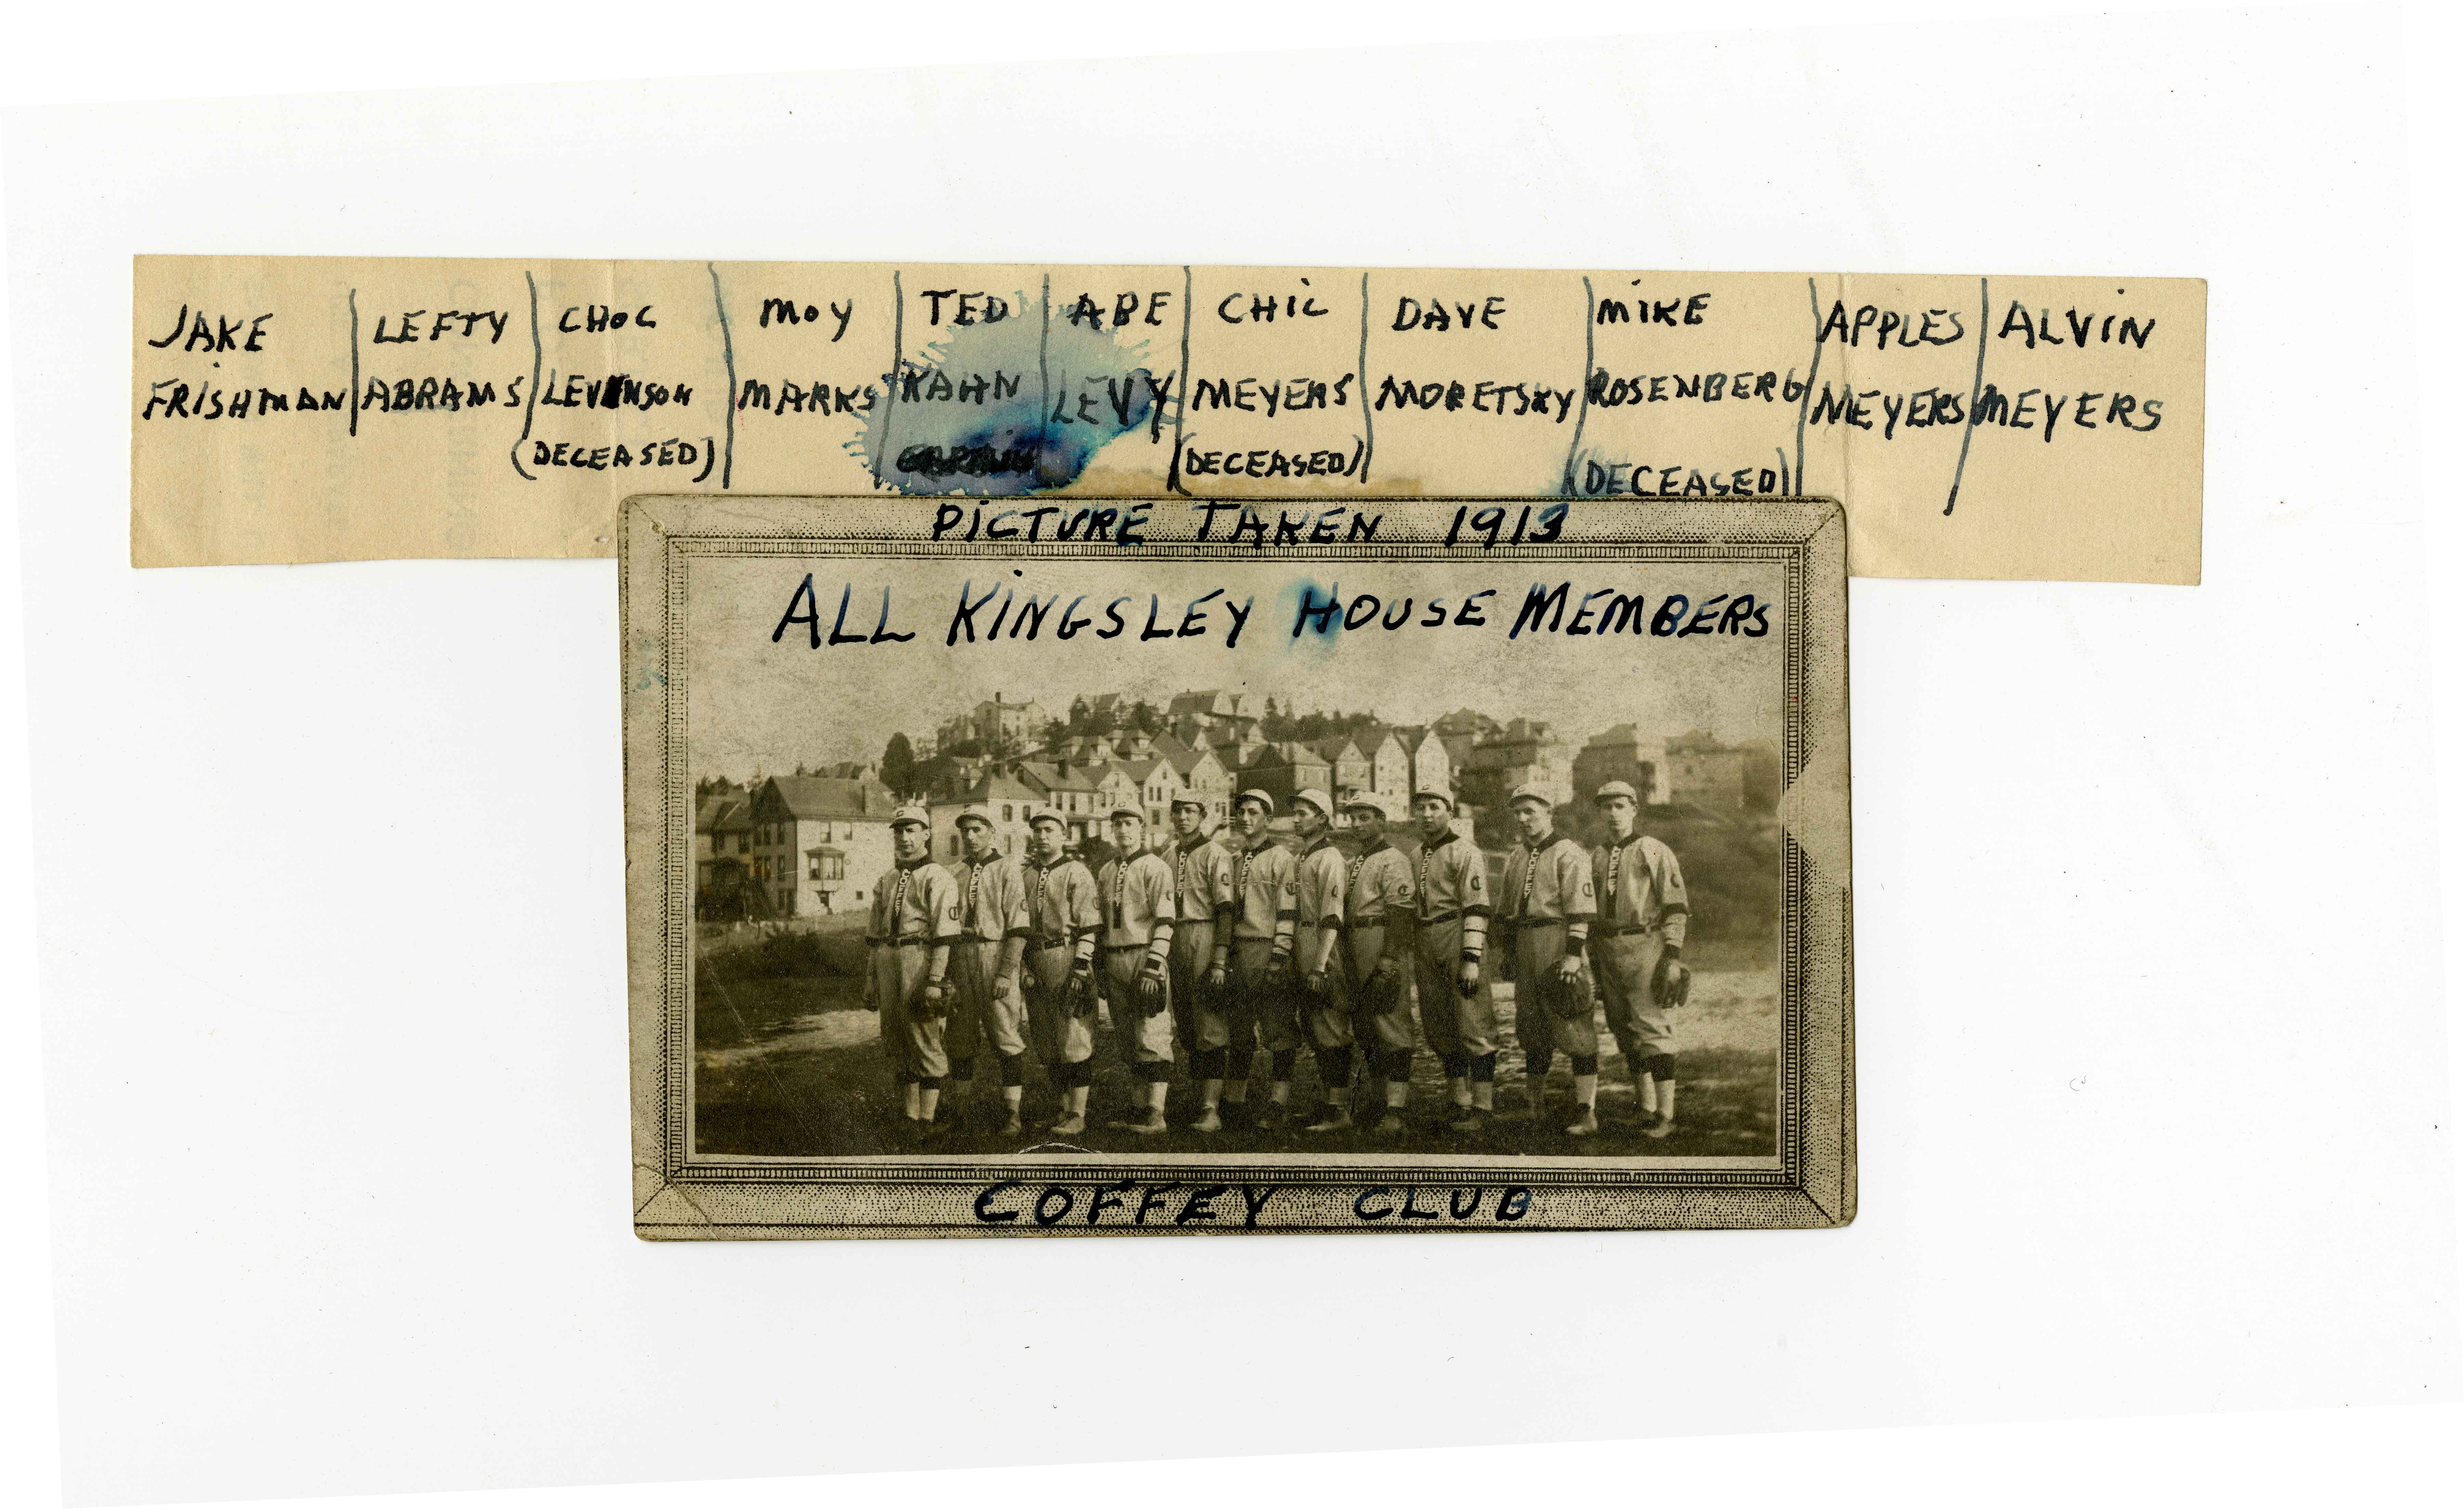 JAKE FRISHMAN
LEFTY ABRAMS
CHOC LEVINSON (DECEASED)
MOY MARKS
TED KAHN
ABE LEVY
CHIC MEYERS (DECEASED)
DAVE MORETSKY
MIKE ROSENBERG (DECEASED)
APPLES MEYERS
ALVIN MEYERS
PICTURE TAKEN 1913
ALL KINGSLEY HOUSE MEMBERS
COFFEY CLUB